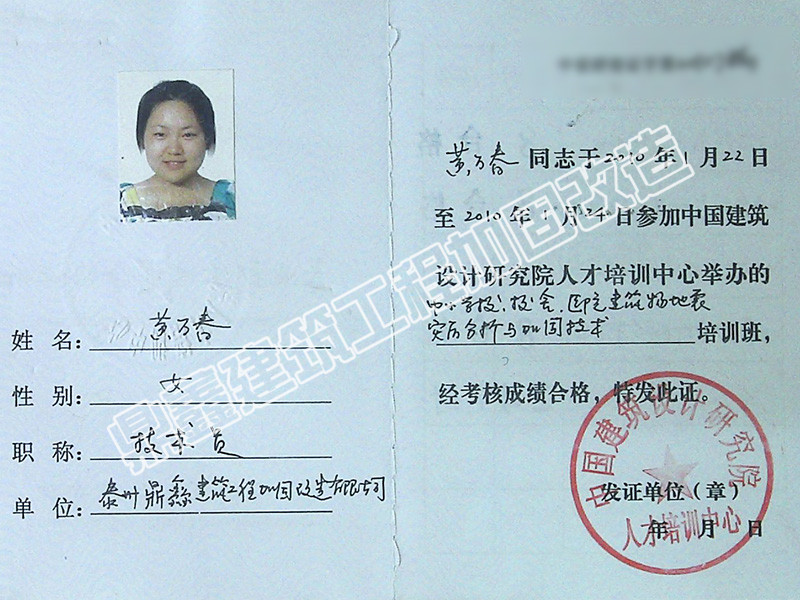 姓 名：黄万春
性 别：女
职 称：技术员
单 位：泰州鼎鑫建筑工程加固改造有限公司
黄万春同志于2010年1月22日
至2010年1月24日参加中国建筑
设计研究院人才培训中心举办的
中小学校、校舍、医院建筑物地震
灾后分析与加固技术 培训班，
经考核成绩合格，特发此证。
发证单位（章）
年 月 日
中国建筑设计研究院
人才培训中心
鼎鑫建筑工程加固改造